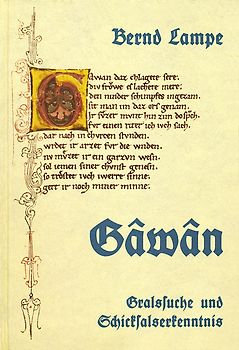 Bernd Lampe
Gawan daz chlagete sere.
div frowe es lachete mere.
den ... schimpfes
sit man im daz ors genam.
hin zvm dosph.
fvr einen riter ich vch sach.
dar nach in chvrcen stvnden.
wrdet ir arzet fvr die wnden.
nv mvzet ir ein garzvn wesn.
sol iemen siner chvnst gnesn.
so trostet vch iwerre sinne.
gert ir noch miner minne.
Gâwân
Gralssuche und
Schicksalserkenntnis